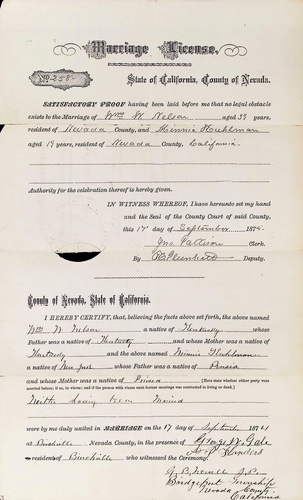 Marriage License,
No 258
State of California, County of Nevada.
SATISFACTORY PROOF having been laid before me that no legal obstacle
exists to the Marriage of Wm W. Nelson aged 39 years,
resident of Nevada County, and Minnie
aged 19 years, resident of Nevada County, California.
Authority for the celebration thereof is hereby given.
IN WITNESS WHEREOF, I have hereunto set my hand
and the Seal of the County Court of said County,
this 17 day of September 1874.
Jno. Pattison Clerk.
By Deputy.
County of Nevada, State of California.
I HEREBY CERTIFY, that, believing the facts above set forth, the above named
Wm W. Nelson a native of Kentucky whose
Father was a native of Kentucky and whose Mother was a native of
Kentucky and the above named Minnie
a native of New York whose Father was a native of Prussia
and whose Mother was a native of Prussia (Here state whether either party were married before; if so, to whom; and if the person with whom such former marriage was contracted is living or dead.)
Neither having been Married
were by me duly united in MARRIAGE on the 17 day of September 1874
at Birchville Nevada County, in the presence of George W. Gale
and
residents of Birchville who witnessed the Ceremony.
J.P.
Bridgeport Township
Nevada County
California